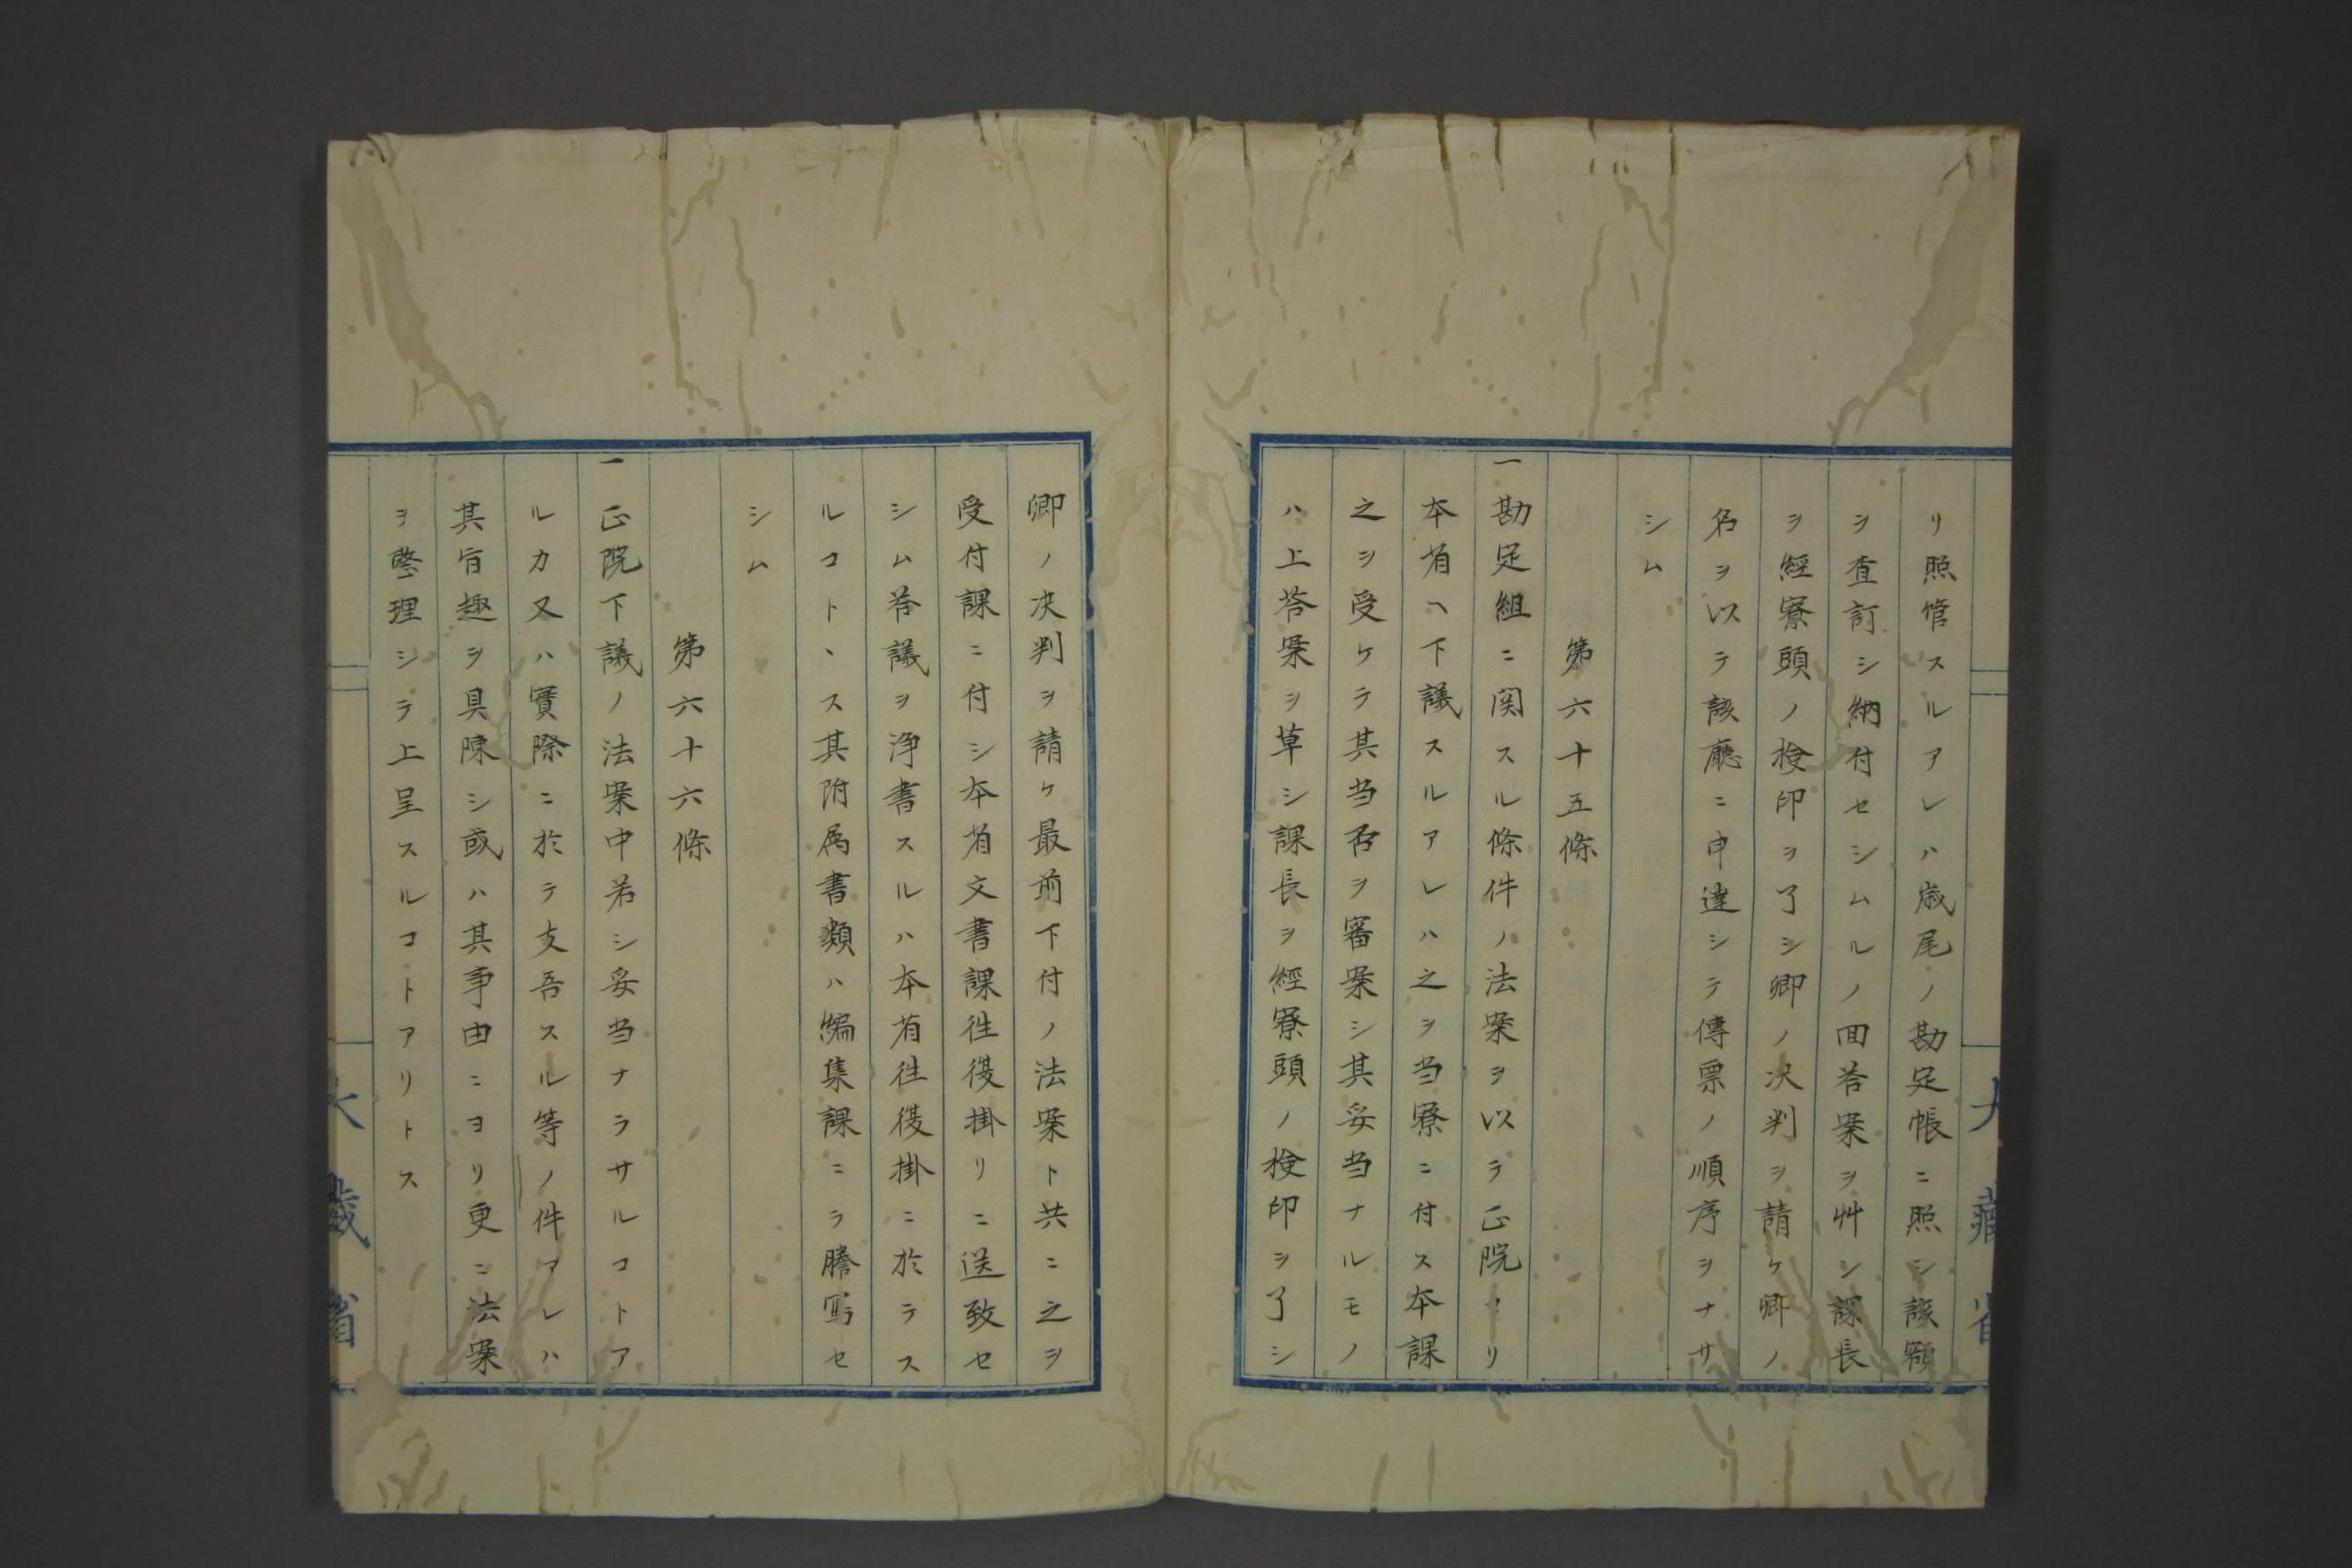 リ照管スルアレハ歳尾ノ勘定帳ニ照シ該額
ヲ査訂シ納付セシムルノ回答案ヲ艸シ課長
ヲ經寮頭ノ検印ヲ了シ卿ノ决判ヲ請ケ卿ノ
名ヲ以テ該廳ニ申達シテ傳票ノ順序ヲナサ
シム
第六十五條
一勘定組ニ関スル條件ノ法案ヲ以テ正院ヨリ
本省ヘ下議スルアレハ之ヲ当寮ニ付ス本課
之ヲ受ケテ其当否ヲ審案シ其妥当ナルモノ
ハ上答案ヲ草シ課長ヲ經寮頭ノ検印ヲ了シ
大藏省
卿ノ决判ヲ請ケ最前下付ノ法案ト共ニ之ヲ
受付課ニ付シ本省文書課徃復掛リニ送致セ
シム答議ヲ浄書スルハ本省徃復掛ニ於テス
ルコトヽス其附属書類ハ編集課ニテ謄寫セ
シム
第六十六條
一正院下議ノ法案中若シ妥当ナラサルコトア
ルカ又ハ實際ニ於テ支吾スル等ノ件アレハ
其旨趣ヲ具陳シ或ハ其事由ニヨリ更ニ法案
ヲ整理シテ上呈スルコトアリトス
大藏省